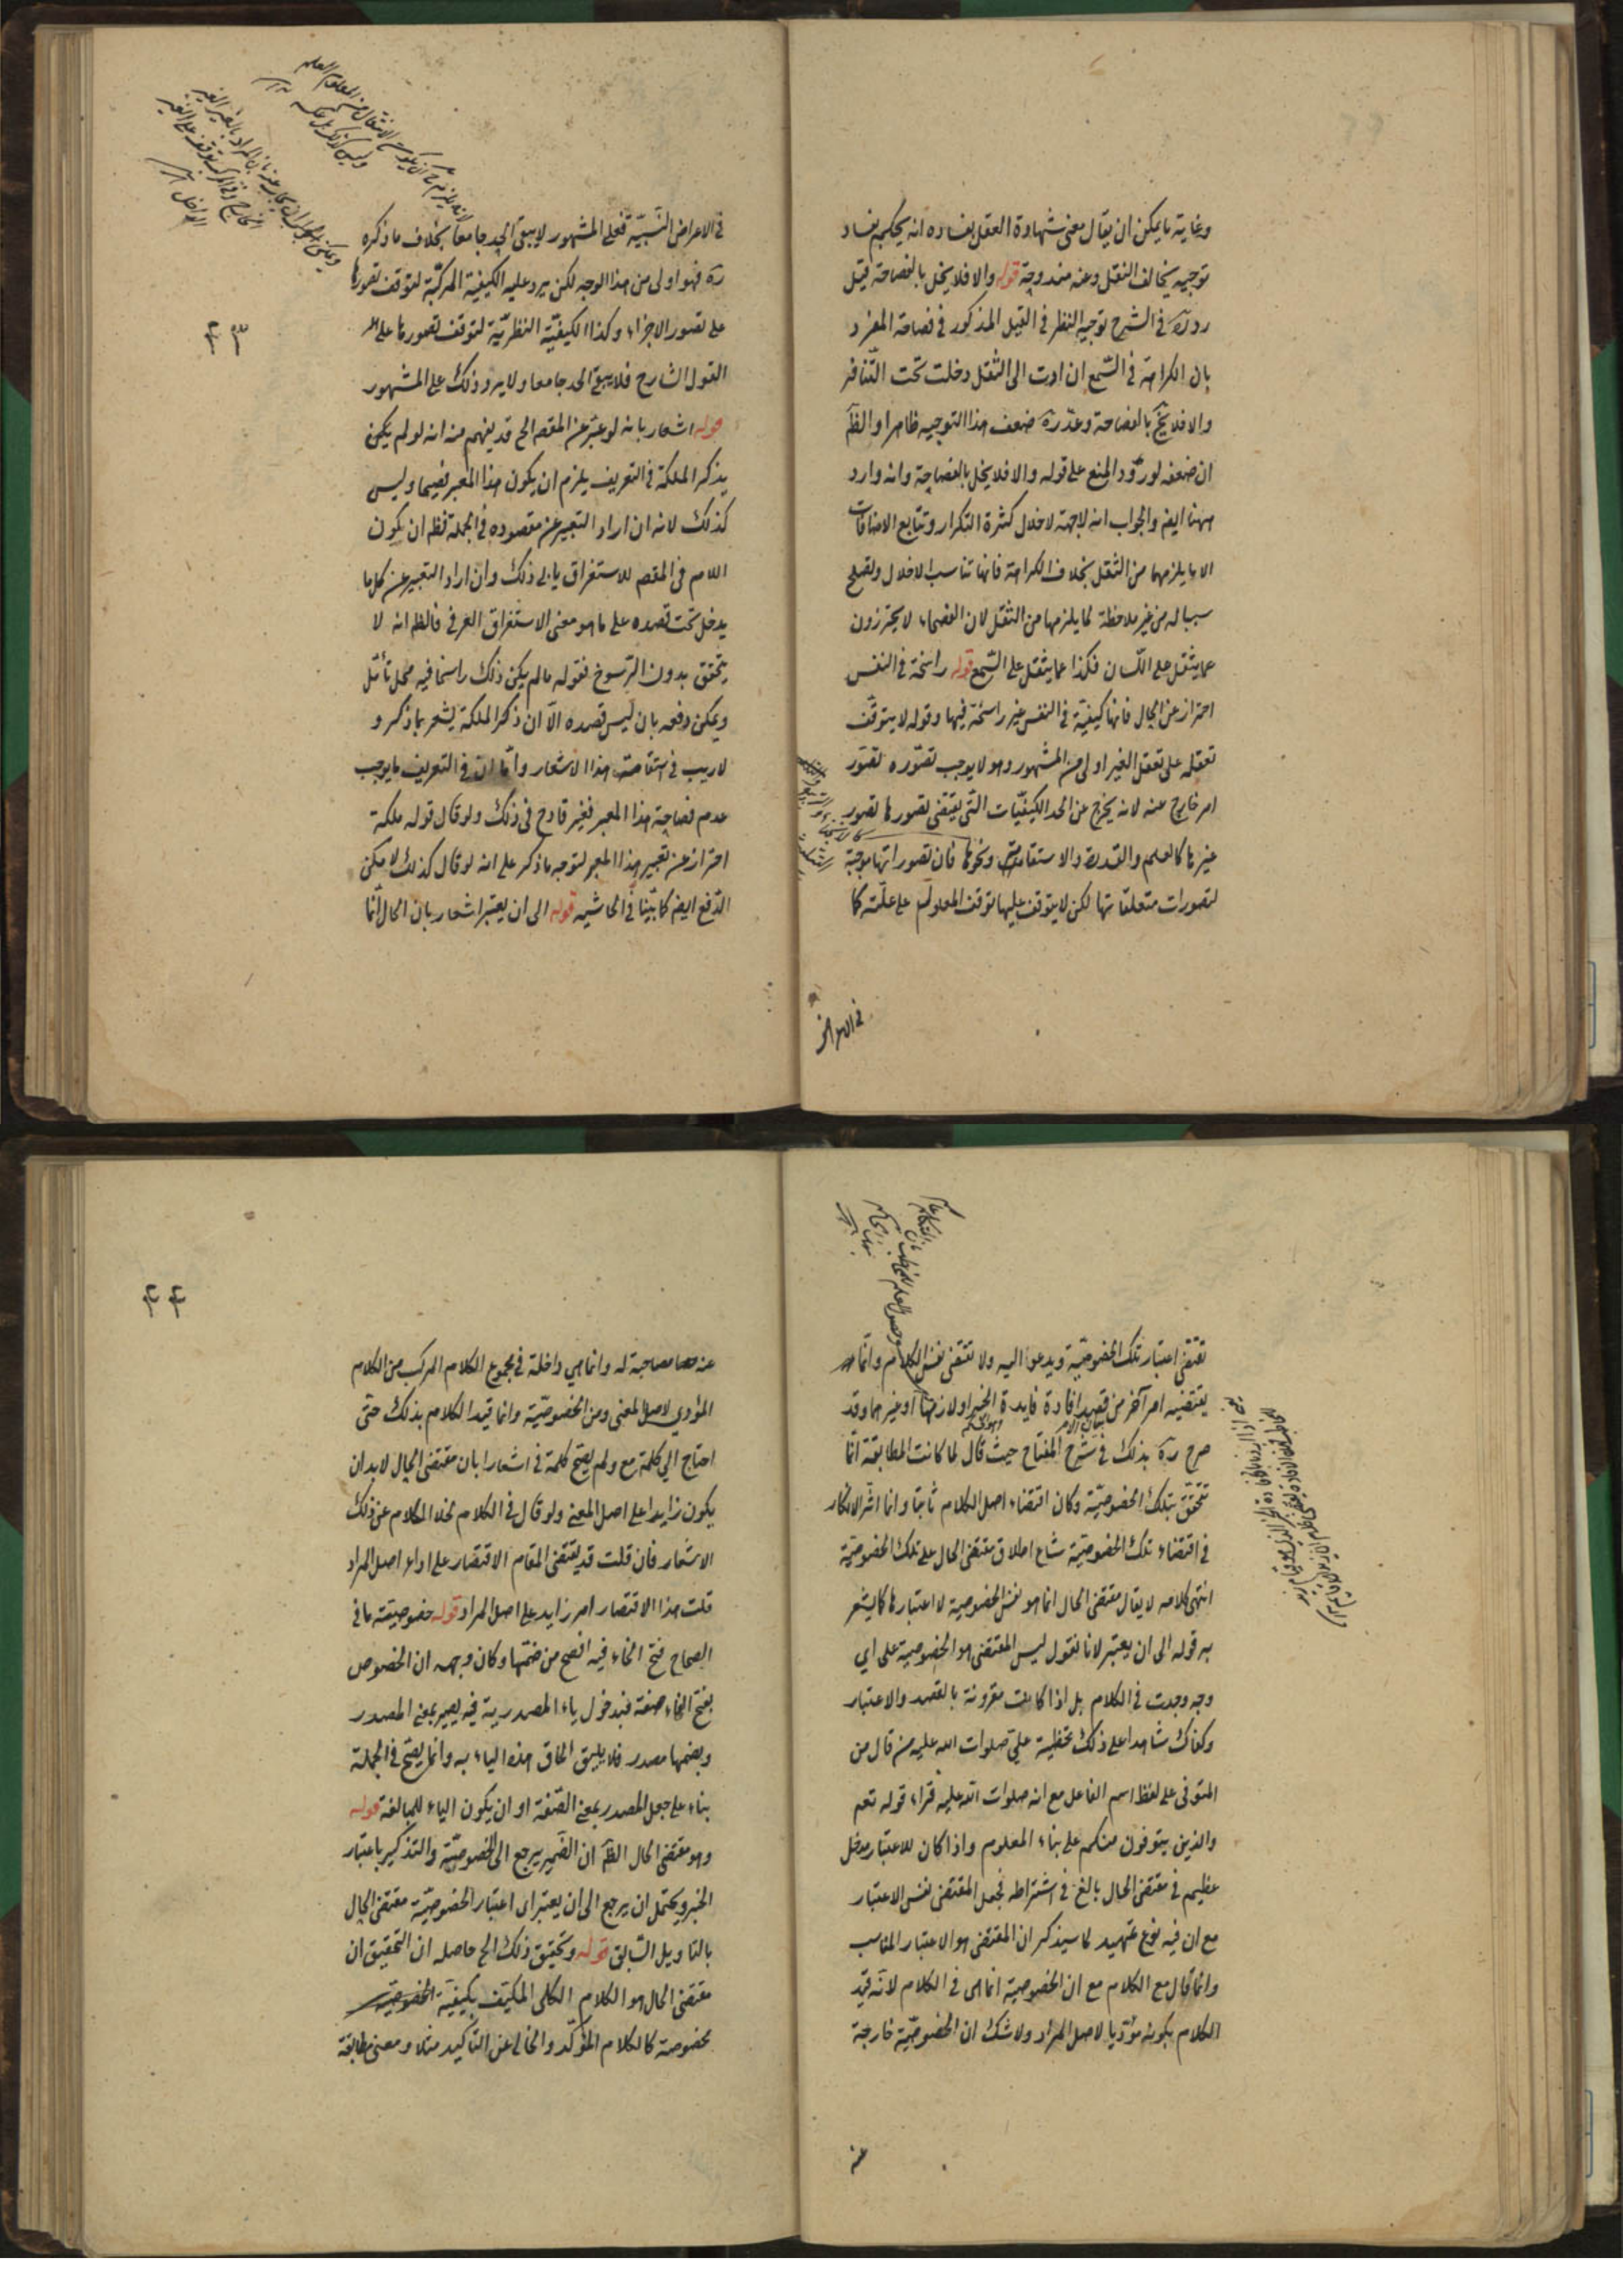 وغاية ما يمكن ان يقال معنى شهادة العقل بفساده انه يحكم بفساد
توجيه يخالف النقل وعنه مندوحة قوله والا فلا يخل بالفصاحة قيل
رده في الشرح توجيه النظر في القيل المذكور في فصاحة المفرد
بان الكراهة في السمع ان ادت الى الثقل دخلت تحت التنافر
والا فلا يخل بالفصاحة وعد ره ضعف هذا التوجيه ظاهرا والظ
ان ضعفه لورود المنع على قوله والا فلا يخل بالفصاحة وانه وارد
ههنا ايض والجواب انه لا جهة لاخلال كثرة التكرار وتتابع الاضافات
الا ما يلزمهما من الثقل بخلاف الكراهة فانها تناسب الاخلال وتصلح
سببا له من غير ملاحظة لما يلزمها من الثقل لان الفصحاء لا يحترزون
عما يثقل على اللسان فكذا عما يثقل على السمع قوله راسخة في النفس
احتراز عن الحال فانها كيفية في النفس غير راسخة فيها وقوله لا يتوقف
تعقله على تعقل الغير اولى من المشهور وهو لا يوجب تصوره تصور
امر خارج عنه لانه يخرج عن الحد الكيفيات التي يقتضي تصورها تصور
غيرها كالعلم والقدرة والاستقامة ونحوها فان تصوراتها موجبة
لتصورات متعلقاتها لكن لا يتوقف عليها توقف المعلول على علته كما
في الاعراض
في الاعراض النسبية فعلى المشهور لا يبقى الحد جامعا بخلاف ما ذكره
ره فهو اولى من هذا الوجه لكن يرد عليه الكيفية المركبة لتوقف تصورها
على تصور الاجزاء وكذا الكيفية النظرية لتوقف تصورها على
القول الشارح فلا يبقى الحد جامعا ولا يرد ذلك على المشهور
قوله اشعار بانه لو عبر عن المقص الخ قد يفهم منه انه لو لم يكن
يذكر الملكة في التعريف يلزم ان يكون هذا المعبر فصيحا وليس
كذلك لانه ان اراد التعبير عن مقصوده في الجملة فظ ان يكون
اللام في المقص للاستغراق يابى ذلك وان اراد التعبير عن كل ما
يدخل تحت قصده على ما هو معنى الاستغراق العرفي فالظ انه لا
يتحقق بدون الرسوخ فقوله ما لم يكن ذلك راسخا فيه محل تأمل
ويمكن دفعه بان ليس قصده الا ان ذكر الملكة يشعر بما ذكر و
لا ريب في استقامة هذا الاشعار واما ان في التعريف ما يوجب
عدم فصاحة هذا المعبر فغير قادح في ذلك ولو قال قوله ملكة
احتراز عن تعبير هذا المعبر لتوجه ما ذكر على انه لو قال كذلك لامكن
الدفع ايض كما بينا في الحاشية قوله الى ان يعتبر اشعار بان الحال انما
٤٣
تقتضي اعتبار تلك الخصوصية ويدعو اليه ولا تقتضي نفس الكلام وانما
يقتضيه امر آخر من قصد افادة فايدة الخبر او لازمها او غيرهما وقد
صرح ره بذلك في شرح المفتاح حيث قال لما كانت المطابقة انما
تتحقق بتلك الخصوصية وكان اقتضاء اصل الكلام ثابتا وانما اثر الانكار
في اقتضاء تلك الخصوصية شاع اطلاق مقتضى الحال على تلك الخصوصية
انتهى كلامه لا يقال مقتضى الحال انما هو نفس الخصوصية لا اعتبارها كما يشعر
به قوله الى ان يعتبر لانا نقول ليس المقتضى هو الخصوصية على اي
وجه وجدت في الكلام بل اذا كانت مقرونة بالقصد والاعتبار
وكفاك شاهدا على ذلك تخطئة علي صلوات الله عليه من قال من
المتوفي على لفظ اسم الفاعل مع انه صلوات الله عليه قراء قوله تعم
والذين يتوفون منكم على بناء المعلوم واذا كان للاعتبار مدخل
عظيم في مقتضى الحال بالغ في اشتراطه فجعل المقتضى نفس الاعتبار
مع ان فيه نوع تمهيد لما سيذكر ان المقتضى هو الاعتبار المناسب
وانما قال مع الكلام مع ان الخصوصية انما هي في الكلام لانه قيد
الكلام بكونه مؤديا لاصل المراد ولا شك ان الخصوصية خارجة
عنه
عنه مصاحبة له وانما هي داخلة في مجموع الكلام المركب من الكلام
المؤدي لاصل المعنى ومن الخصوصية وانما قيد الكلام بذلك حتى
احتاج الى كلمة مع ولم يصح كلمة في اشعارا بان مقتضى الحال لا بد ان
يكون زايدا على اصل المعنى ولو قال في الكلام لخلا الكلام عن ذلك
الاشعار فان قلت قد يقتضي المقام الاقتصار على اداء اصل المراد
قلت هذا الاقتصار امر زايد على اصل المراد قوله خصوصيته ما في
الصحاح فتح الخاء فيه افصح من ضمها وكان وجهه ان الخصوص
بفتح الخاء صفة فبدخول ياء المصدرية فيه يصير بمعنى المصدر
وبضمها مصدر فلا يليق الحاق هذه الياء به وانما يصح في الجملة
بناء على جعل المصدر بمعنى الصفة او ان يكون الياء للمبالغة قوله
وهو مقتضى الحال الظ ان الضمير يرجع الى الخصوصية والتذكير باعتبار
الخبر ويحتمل ان يرجع الى ان يعتبر اى اعتبار الخصوصية مقتضى الحال
بالتاويل السابق قوله وتحقيق ذلك الخ حاصله ان التحقيق ان
مقتضى الحال هو الكلام الكلي المكيف بكيفية
مخصوصة كالكلام المؤكد والخالي عن التاكيد مثلا ومعنى مطابقة
٤٤